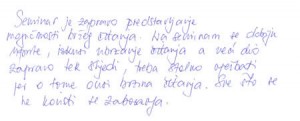 Seminar je zapravo predstavljanje
mogućnosti bržeg čitanja. Na seminaru se dobiju
upute, tehnike ubrzanja čitanja a veći dio
zapravo tek slijedi, treba stalno vježbati
jer o tome ovisi brzina čitanja. Sve što se
ne koristi se zaboravlja.